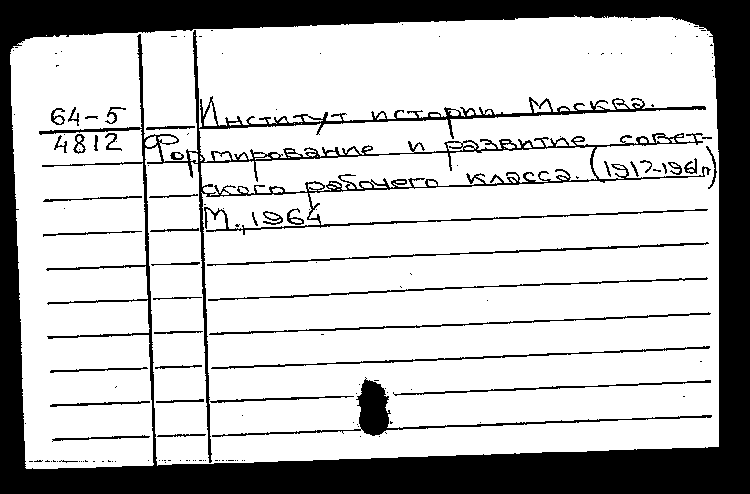 64-5 Институт истории. Москва.
4812 Формирование и развитие совет-
ского рабочего класса. (1917-1961гг)
М., 1964